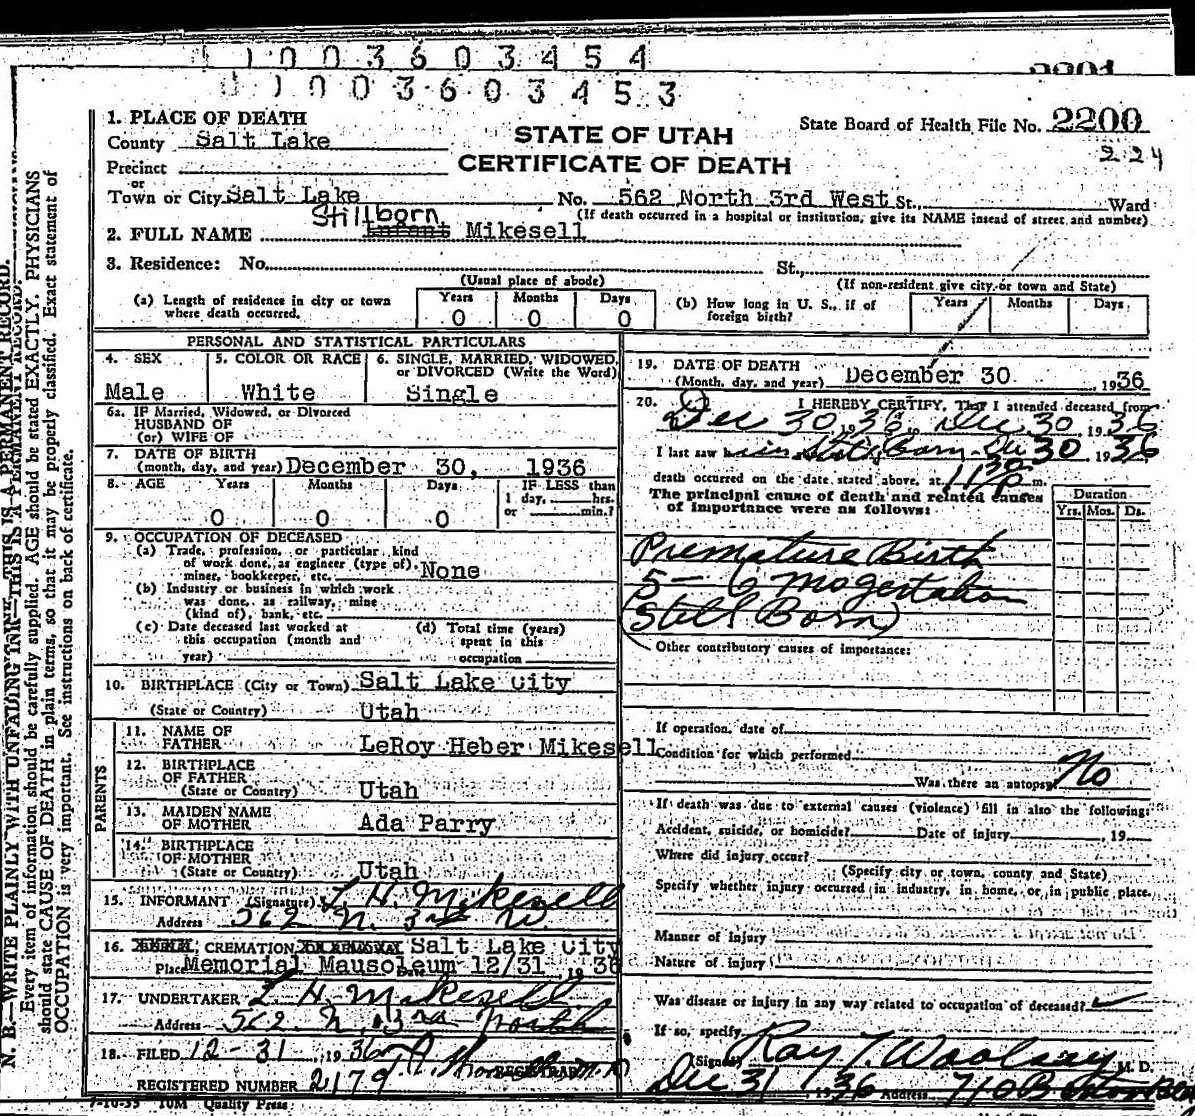 1003603454
1003603453
2201
1. PLACE OF DEATH
County Salt Lake
Precinct
or
Town or City Salt Lake
STATE OF UTAH
CERTIFICATE OF DEATH
State Board of Health File No. 2200
224
No. 562 North 3rd West St., Ward
(If death occurred in a hospital or institution, give its NAME insead of street and number)
Stillborn
2. FULL NAME Infant Mikesell
3. Residence: No. St.,
(Usual place of abode) (If non-resident give city or town and State)
(a) Length of residence in city or town where death occurred. Years 0 Months 0 Days 0
(b) How long in U. S., if of foreign birth? Years Months Days
PERSONAL AND STATISTICAL PARTICULARS
4. SEX Male
5. COLOR OR RACE White
6. SINGLE, MARRIED, WIDOWED, or DIVORCED (Write the Word) Single
6a. IF Married, Widowed, or Divorced
HUSBAND OF
(or) WIFE OF
7. DATE OF BIRTH
(month, day, and year) December 30, 1936
8. AGE Years Months Days IF LESS than
1 day, hrs.
or min.?
0 0 0
9. OCCUPATION OF DECEASED
(a) Trade, profession, or particular kind
of work done, as engineer (type of),
miner, bookkeeper, etc. None
(b) Industry or business in which work
was done, as railway, mine
(kind of), bank, etc.
(c) Date deceased last worked at
this occupation (month and
year)
(d) Total time (years)
spent in this
occupation
10. BIRTHPLACE (City or Town) Salt Lake City
(State or Country) Utah
PARENTS
11. NAME OF
FATHER LeRoy Heber Mikesell
12. BIRTHPLACE
OF FATHER
(State or Country) Utah
13. MAIDEN NAME
OF MOTHER Ada Parry
14. BIRTHPLACE
OF MOTHER
(State or Country) Utah
15. INFORMANT (Signature) L. H. Mikesell
Address 562 N. 3rd W.
16. BURIAL, CREMATION, OR REMOVAL Salt Lake City
Place Memorial Mausoleum Date 12/31 1936
17. UNDERTAKER L H Mikesell
Address 562 N. 3rd North
18. FILED 12-31, 1936
REGISTRAR
REGISTERED NUMBER 2179
7-10-35 10M Quality Press
19. DATE OF DEATH
(Month, day, and year) December 30, 1936
20. I HEREBY CERTIFY, That I attended deceased from
Dec 30, 1936 to Dec 30, 1936
I last saw him Still Born Dec 30 1936
death occurred on the date stated above, at 11 30 P m.
The principal cause of death and related causes
of importance were as follows:
Duration
Yrs. Mos. Ds.
Premature Birth
5 - 6 Mo gestation
(Still Born)
Other contributory causes of importance:
If operation, date of
Condition for which performed
Was there an autopsy No
If death was due to external causes (violence) fill in also the following:
Accident, suicide, or homicide? Date of injury , 19
Where did injury occur?
(Specify city or town, county and State)
Specify whether injury occurred in industry, in home, or in public place.
Manner of injury
Nature of injury
Was disease or injury in any way related to occupation of deceased?
If so, specify
(Signed) Ray T. Woolsey, M. D.
Dec 31, 1936 Address 710 Boston Bldg
N. B.—WRITE PLAINLY WITH UNFADING INK—THIS IS A PERMANENT RECORD.
Every item of information should be carefully supplied. AGE should be stated EXACTLY. PHYSICIANS
should state CAUSE OF DEATH in plain terms, so that it may be properly classified. Exact statement of
OCCUPATION is very important. See instructions on back of certificate.